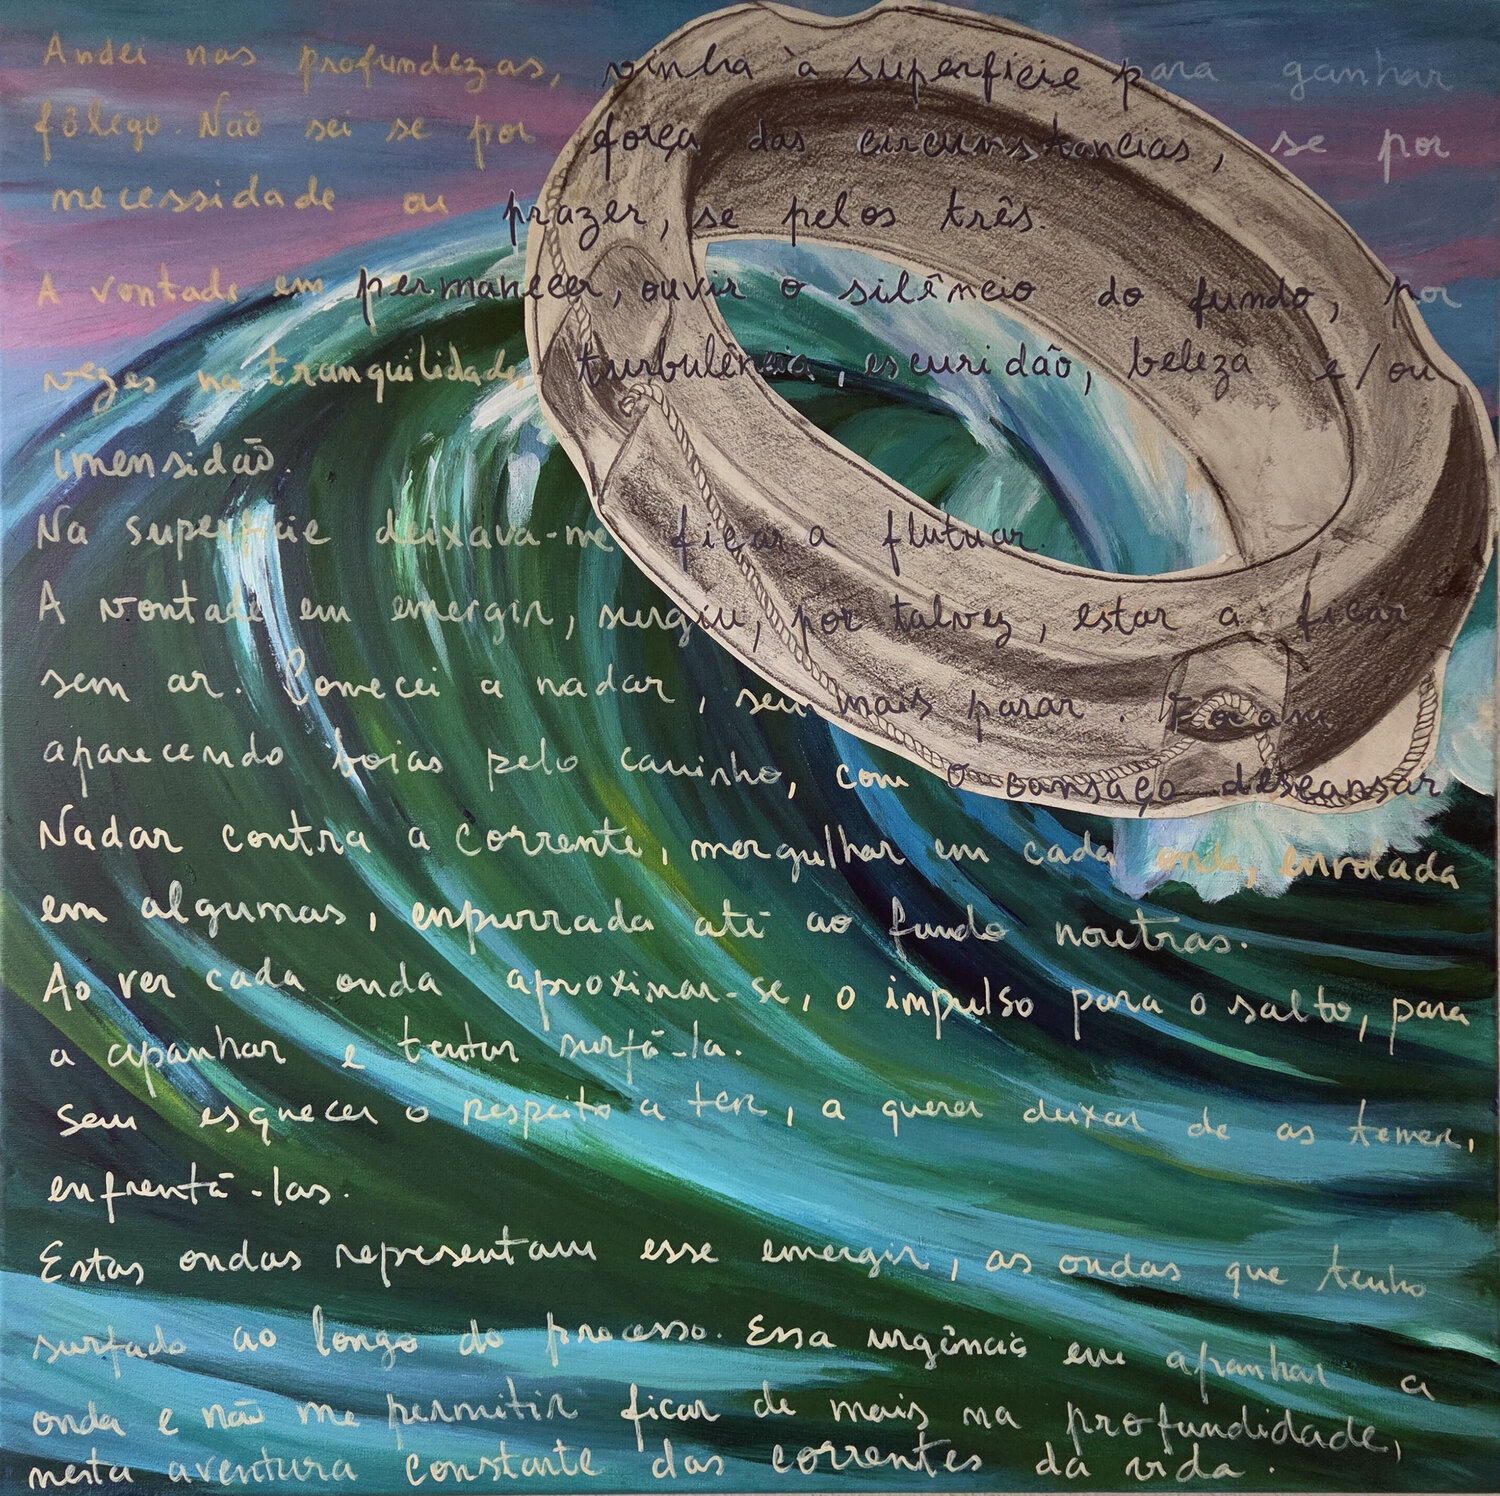 Andei nas profundezas, vinha à superfície para ganhar
fôlego. Não sei se por força das circunstancias, se por
necessidade ou prazer, se pelos três.
A vontade em permanecer, ouvir o silêncio do fundo, por
vezes na tranquilidade, turbulência, escuridão, beleza e/ou
imensidão.
Na superfície deixava-me ficar a flutuar.
A vontade em emergir, surgiu, por talvez, estar a ficar
sem ar. Comecei a nadar, sem mais parar. Foram
aparecendo boias pelo caminho, com o cansaço descansar
Nadar contra a corrente, mergulhar em cada onda, enrolada
em algumas, empurrada até ao fundo noutras.
Ao ver cada onda aproximar-se, o impulso para o salto, para
a apanhar e tentar surfá-la.
Sem esquecer o respeito a ter, a querer deixar de as temer,
enfrentá-las.
Estas ondas representam esse emergir, as ondas que tenho
surfado ao longo do processo. Essa urgência em apanhar a
onda e não me permitir ficar de mais na profundidade,
nesta aventura constante das correntes da vida.